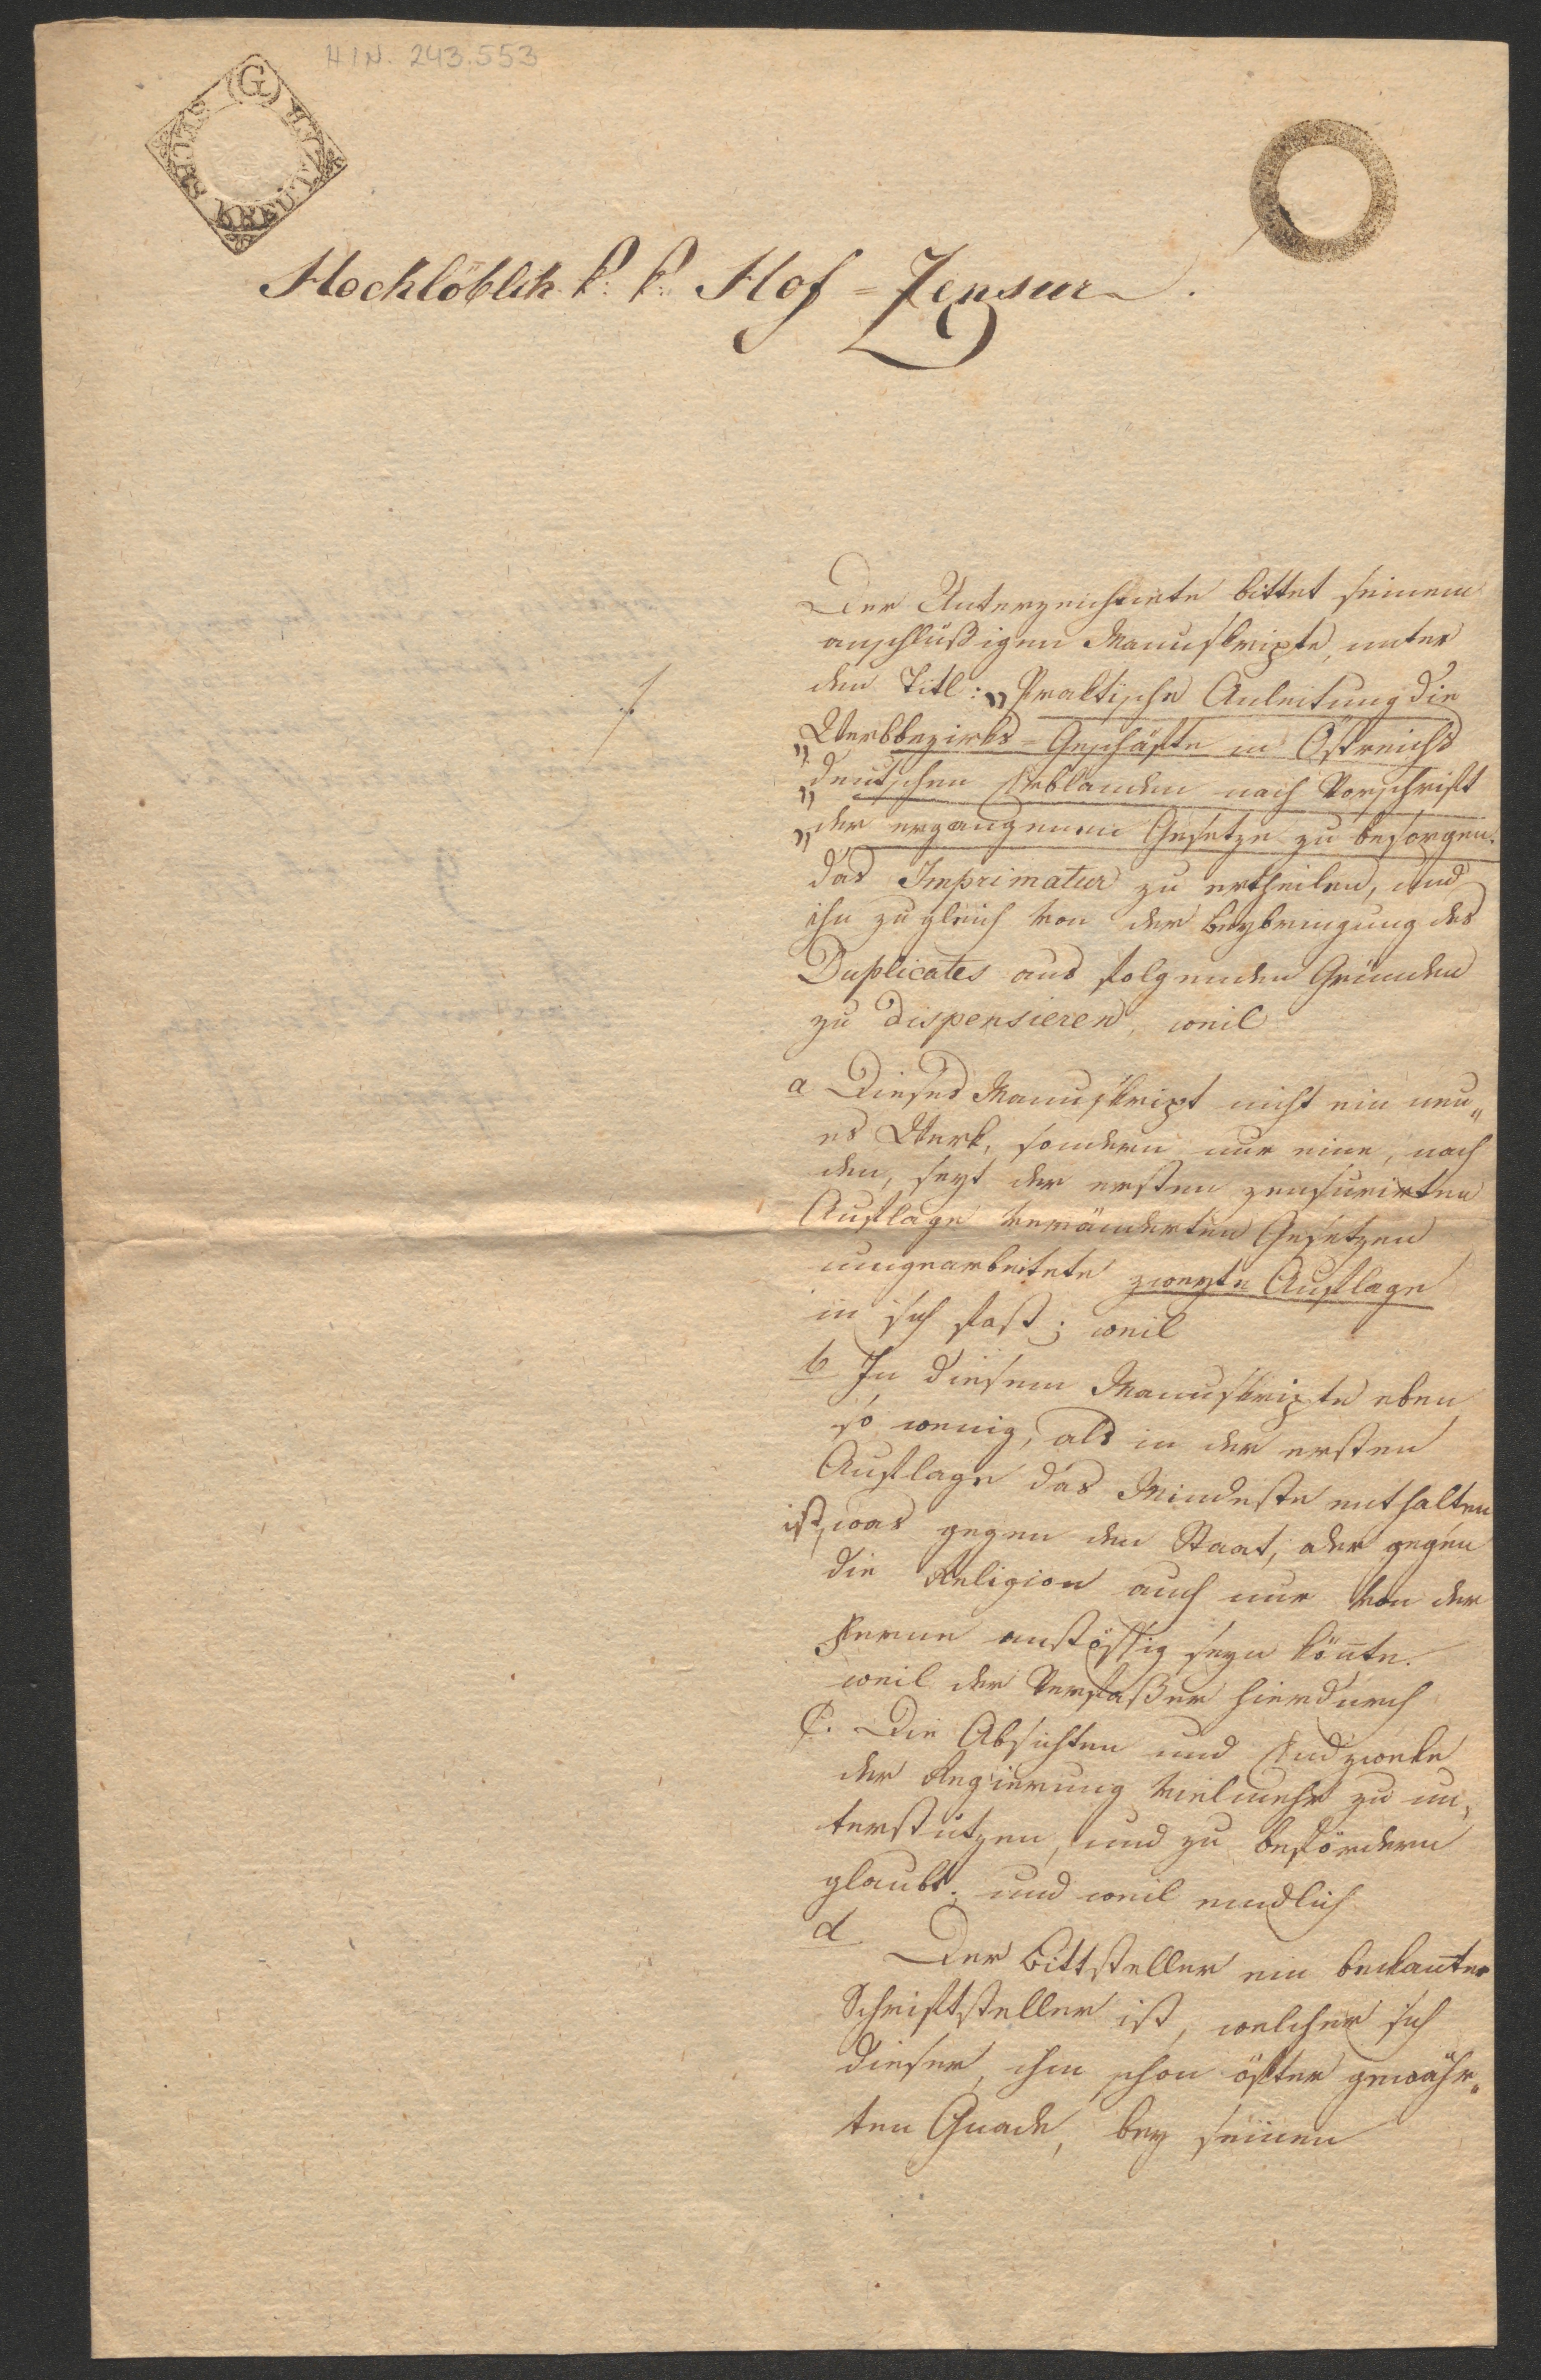 H I N. 243.553
(G)
SECHS KREUTZER
Hochlöblich k: k: Hof=Zensur.
Der Unterzeichnete bittet seinem
anschlüßigen Manuskripte, unter
den Titl: „Praktische Anleitung die
„Werbbezirks=Geschäfte in Östreichs
„deutschen Erblanden nach Vorschrift
„der ergangenen Gesetze zu besorgen.
das Imprimatur zu ertheilen, und
ihn zugleich von der Beybringung des
Duplicates aus folgenden Gründen
zu dispensieren, weil
a Dieses Manuskript nicht ein neu„
es Werk, sondern nur eine, nach
den, seyt der ersten zensurirten
Auflage veränderten Gesetzen
umgearbeitete zweyte Auflage
in sich faßt; weil
b In diesem Manuskripte eben
so wenig, als in der ersten
Auflage das Mindeste enthalten
ist, was gegen den Staat, oder gegen
die Religion auch nur von der
Ferne anstössig seyn kön̄te.
weil der Verfaßer hierdurch
C. Die Absichten und Endzweke
der Regierung vielmehr zu un„
terstützen, und zu befördern
glaubt; und weil endlich
d
Der Bittsteller ein bekan̄ter
Schriftsteller ist, welcher sich
dieser, ihm schon öfter gewähr„
ten Gnade, bey seinen